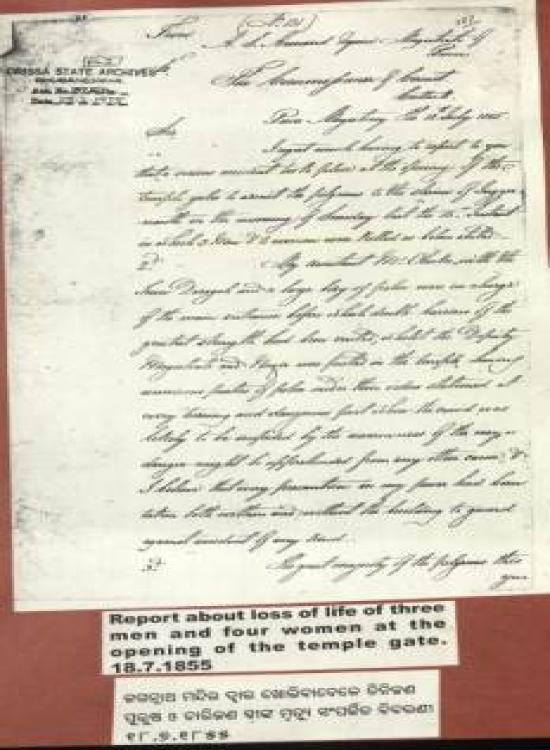 (No 131)
From
Magistrate of
Pooree
ORISSA STATE ARCHIVES
To
The Commissioner of
Cuttack
Pooree Magistracy the 18th July 1855
Sir
I regret much having to report to you
that a serious accident took place at the opening of the
temple gates to admit the pilgrims to the shrine of
on the morning of Sunday last the 15th Instant
in which 3 men & 4 women were killed as below stated
2d My assistant Mr. with the
and a large body of police were in charge
of the main entrance before which double barriers of the
greatest strength had been erected, whilst the Deputy
Magistrate and were posted in the temple, having
numerous parties of police under their orders stationed at
every turning and dangerous post where the crowd was
likely to be impeded by the narrowness of the way or
danger might be apprehended from any other cause, &
I believe that every precaution in my power had been
taken both within and without the building to guard
against accident of any kind.
3d The great majority of the pilgrims this
year
Report about loss of life of three
men and four women at the
opening of the temple gate.
18.7.1855
ଜଗନ୍ନାଥ ମନ୍ଦିର ଦ୍ୱାର ଖୋଲିବାବେଳେ ତିନିଜଣ
ପୁରୁଷ ଓ ଚାରିଜଣ ସ୍ତ୍ରୀଙ୍କ ମୃତ୍ୟୁ ସଂପର୍କିତ ବିବରଣୀ
୧୮.୭.୧୮୫୫